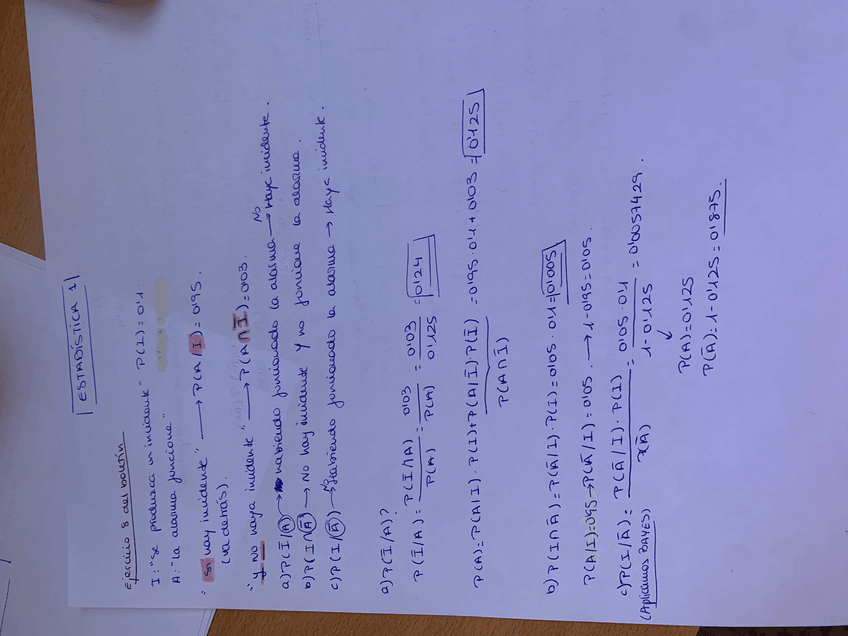 ESTADÍSTICA 1
Ejercicio 8 del boletín
I: "Se produzca un incidente" P(I)=0'1.
A: "La alarma funcione"
"Si hay incidente" → P(A/I)=0'95.
(va detrás).
"y no haya incidente" → P(A∩Ī)=0'03.
a) P(Ī/A) → habiendo funcionado la alarma → No Haya incidente.
b) P(I∩Ā) → No hay incidente y no funcione la alarma.
c) P(I/Ā) → No Habiendo funcionado la alarma → Haya incidente.
a) P(Ī/A)?
P(Ī/A) = P(Ī∩A) / P(A) = 0'03 / P(A) = 0'03 / 0'125 = 0'24
P(A) = P(A/I) · P(I) + P(A/Ī) P(Ī) = 0'95 · 0'1 + 0'03 = 0'125
P(A∩Ī)
b) P(I∩Ā) = P(Ā/I) · P(I) = 0'05 · 0'1 = 0'005
P(A/I)=0'95 → P(Ā/I)=0'05. → 1-0'95=0'05.
c) P(I/Ā) = P(Ā/I) · P(I) / P(Ā) = 0'05 · 0'1 / 1-0'125 = 0'0057429.
(Aplicamos BAYES)
P(A)=0'125
P(Ā)=1-0'125=0'875.